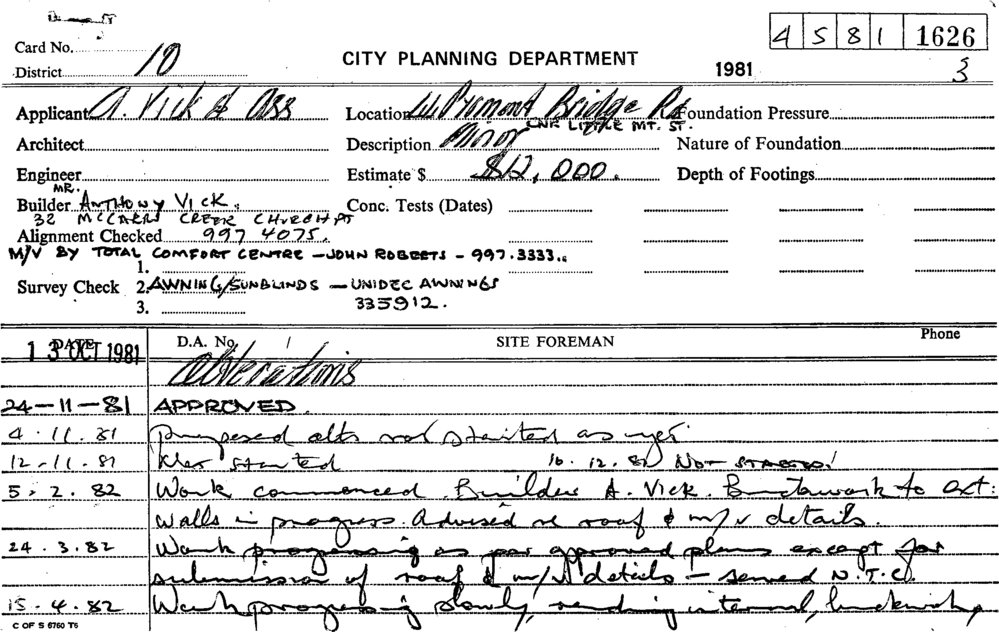 Card No.
4 5 8 1 1626
District 10
CITY PLANNING DEPARTMENT
1981
3
Applicant A. Vick & Ass
Location Pyrmont Bridge Rd
CNR LITTLE MT. ST.
Foundation Pressure
Architect
Description Minor
Nature of Foundation
Engineer
Estimate $ $12,000.
Depth of Footings
MR.
Builder ANTHONY VICK.
Conc. Tests (Dates)
32 McCARRS CREEK CHURCH PT
Alignment Checked 997 4075.
M/V BY TOTAL COMFORT CENTRE – JOHN ROBERTS – 997.3333.
1.
Survey Check 2. AWNING/SUNBLINDS – UNIDEC AWNINGS
335912.
3.
DATE
13 OCT 1981
D.A. No. / /
SITE FOREMAN
Phone
Alterations
24-11-81 APPROVED.
4.11.81 Proposed alts not started as yet
12.11.81 started 16.12.81 NOT STARTED!
5.2.82 Work commenced. Builder A. Vick. Brickwork to ext:
walls in progress. Advised re roof & m/v details.
24.3.82 Work progressing as per approved plans except for
submission of roof & m/v details – served N.T.C.
15.4.82 Work progressing slowly, rendering internal, brickwork
C OF S 6760 T6